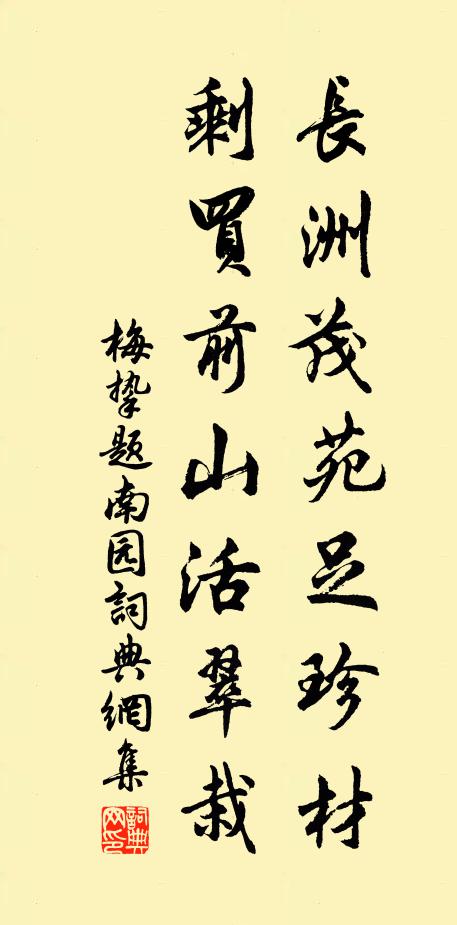 長洲茂苑足珍材
剩買前山活翠栽
梅挚题南园詞典網集
詞典网印